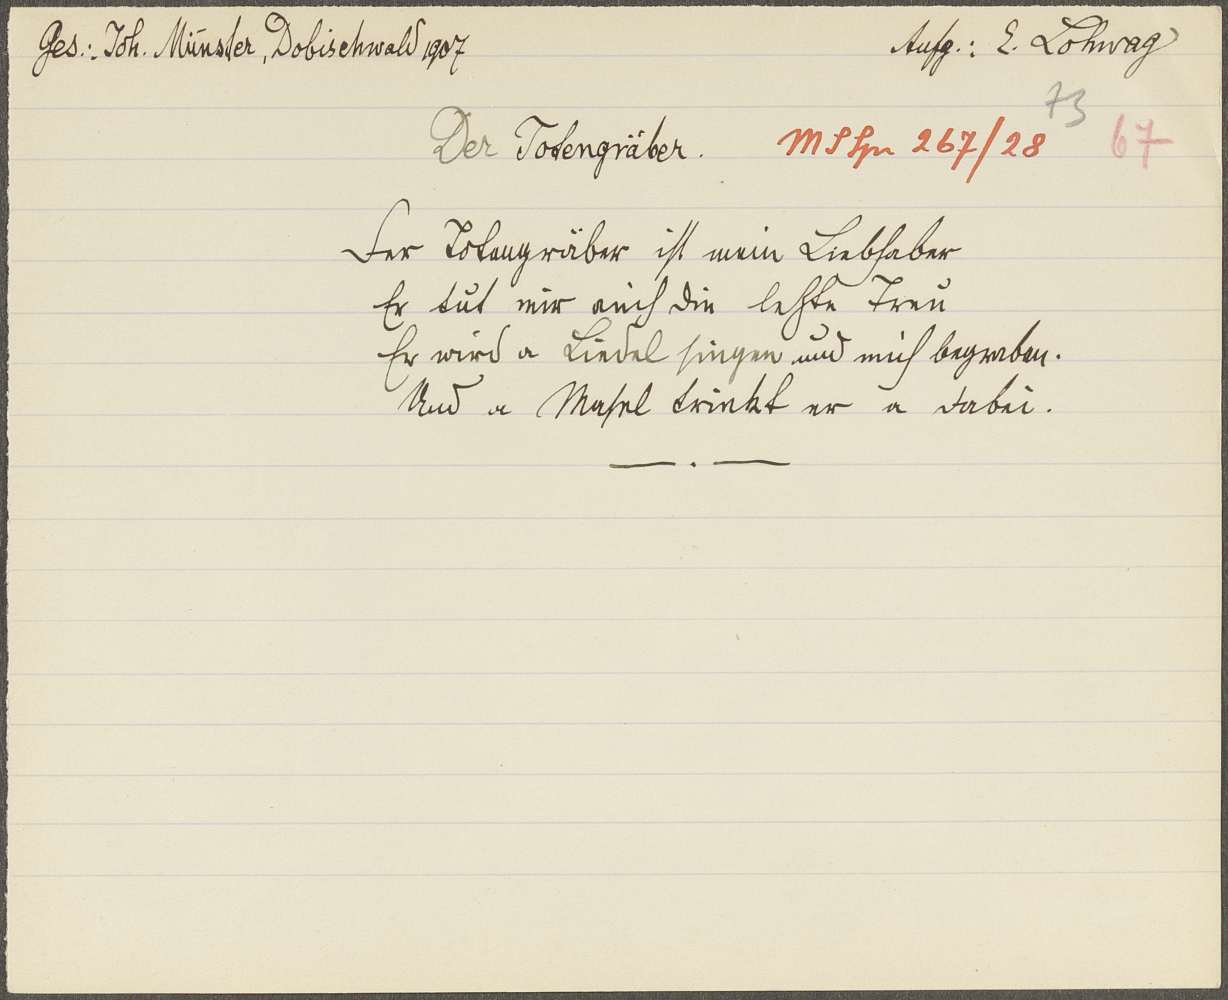 Ges.: Joh. Münster, Dobischwald 1907
Aufg.: E. Lohwag
73
Der Totengräber.
MS Spr 267/28
67
Der Totengräber ist mein Liebhaber
Er tut mir auch die letzte Treu
Er wird a Liedel singen und mich begraben.
Und a Masel trinkt er a dabei.